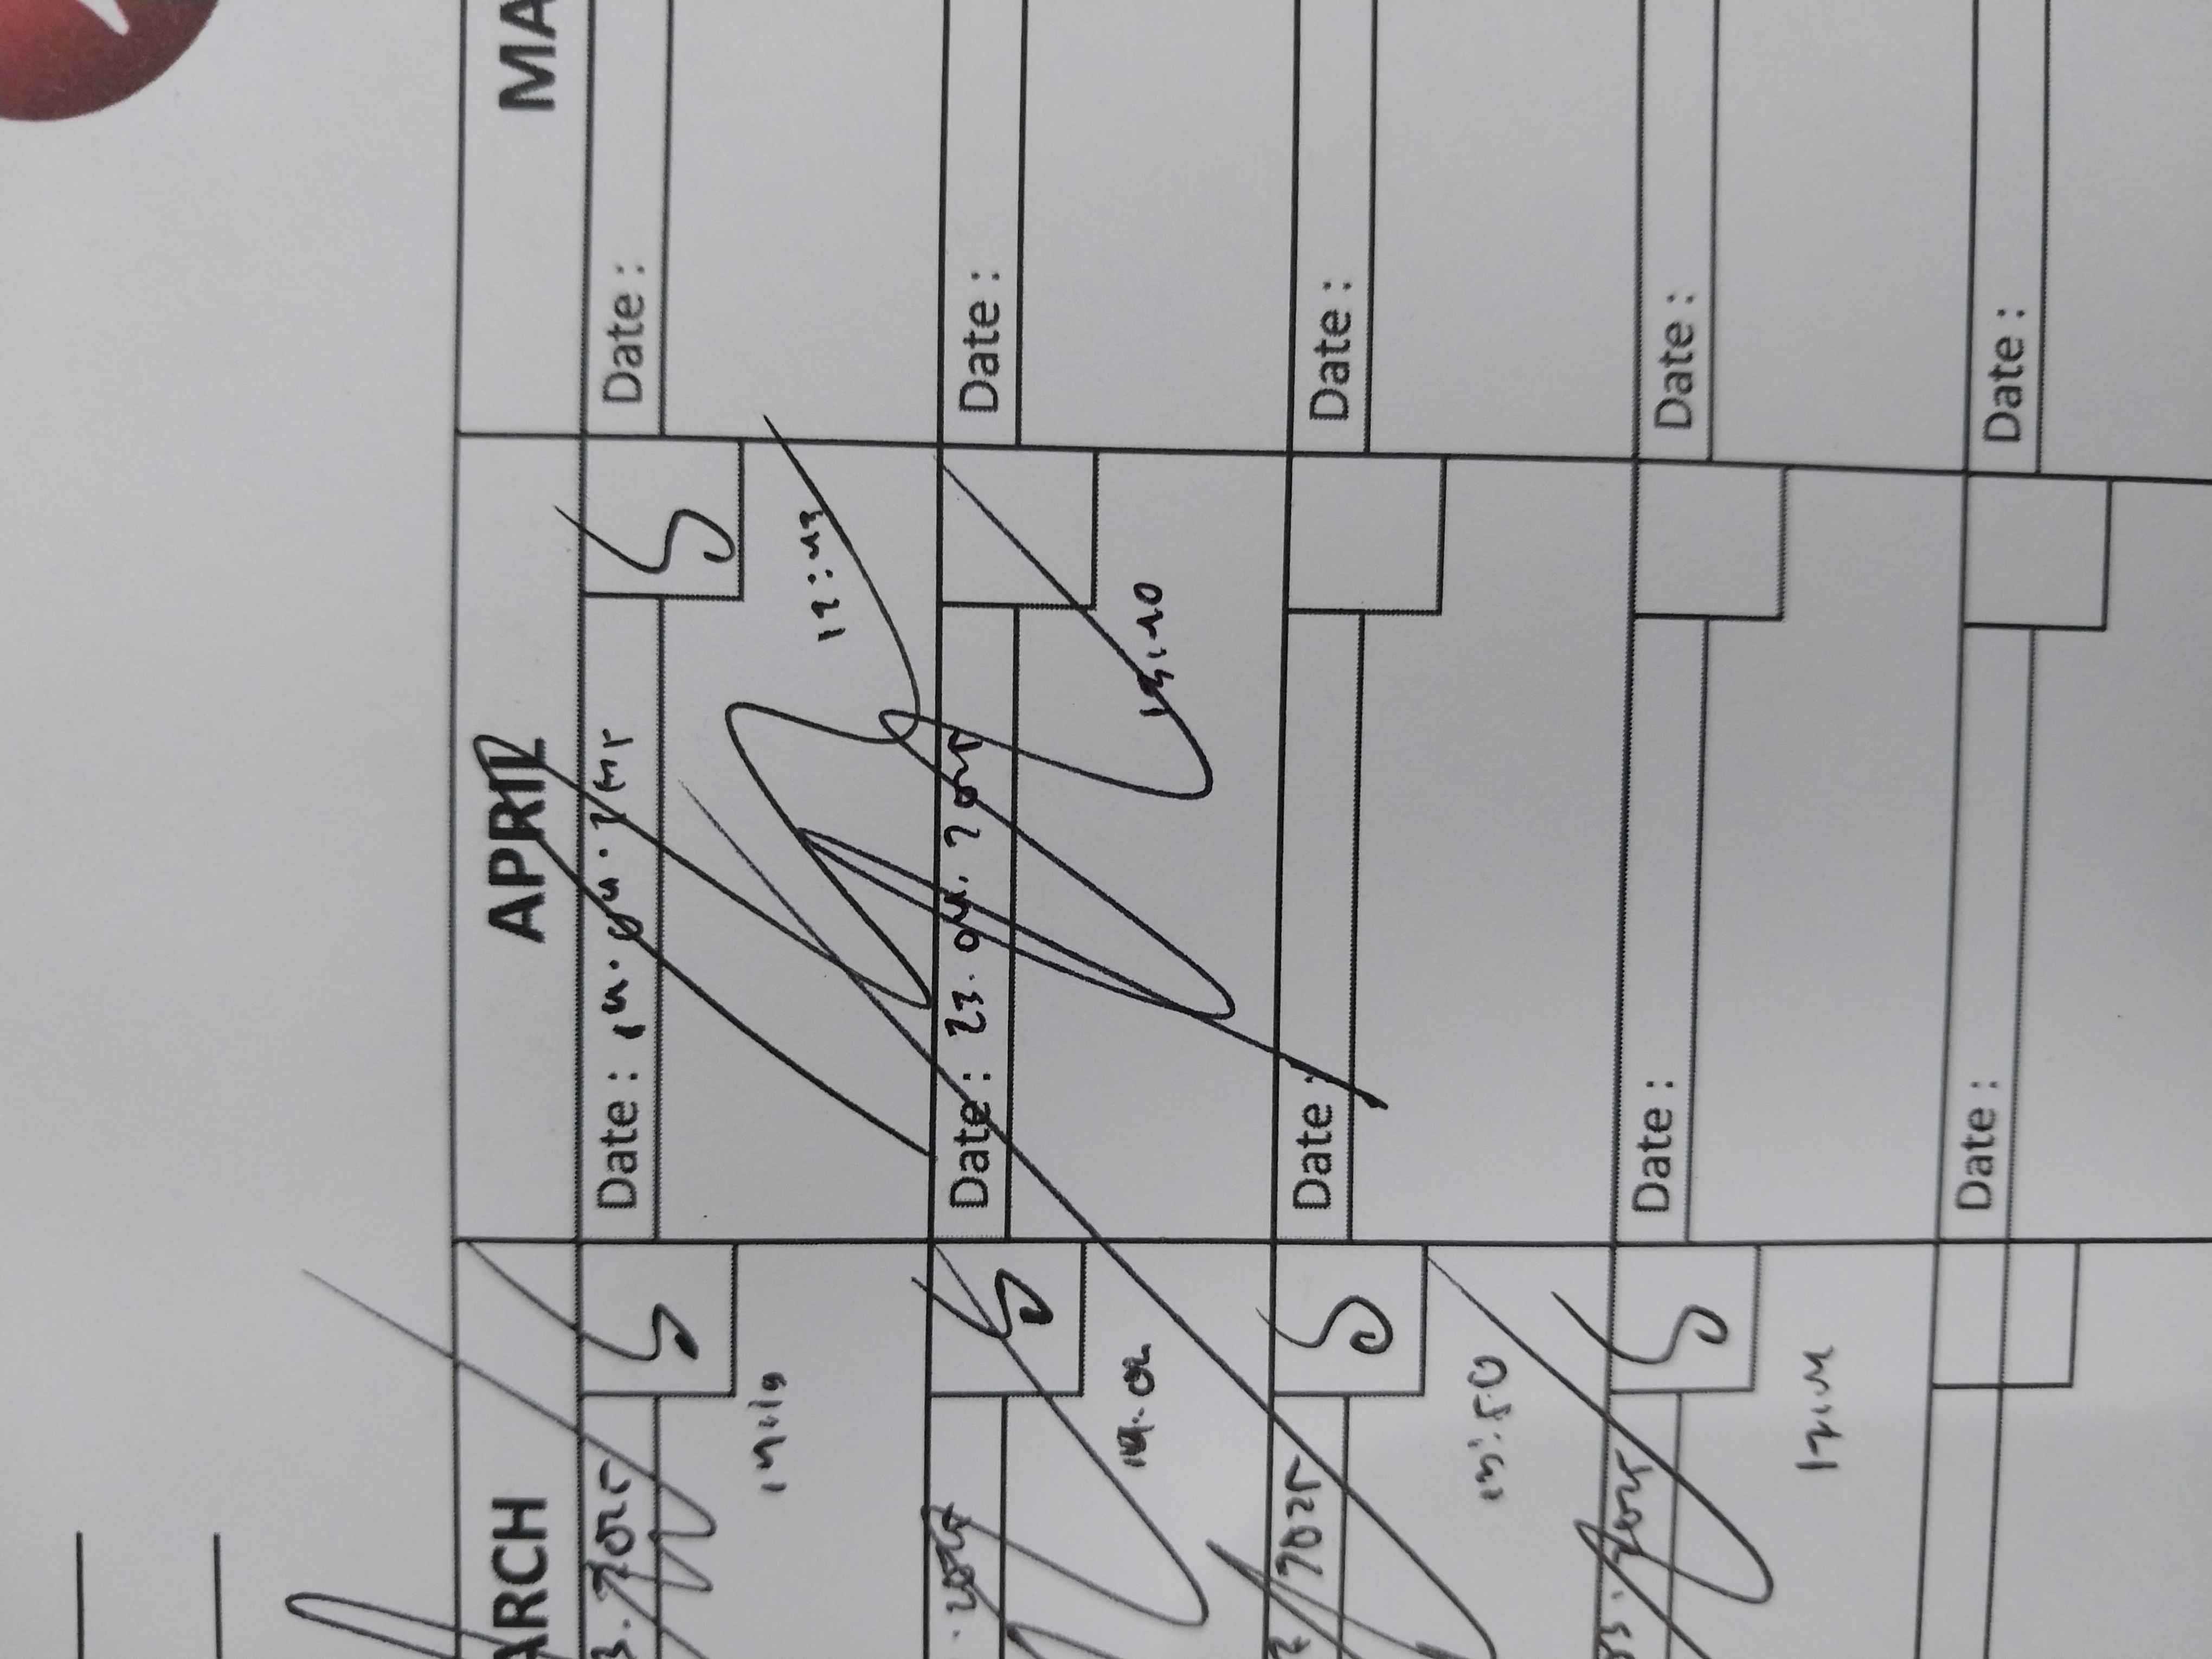 ARCH
APRIL
MA
3.2025
S
Date : 14.04.2025
S
Date :
14:19
12:43
. 2025
S
Date : 23.04.2025
Date :
14:02
13:40
2025
S
Date :
Date :
13:50
03.2025
S
Date :
Date :
Date :
Date :